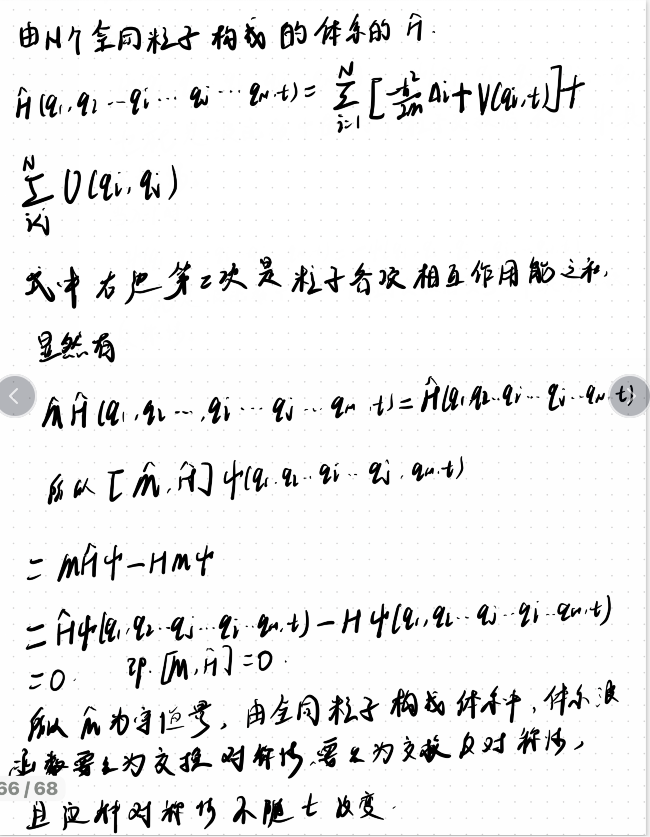 由N个全同粒子构成的体系的Ĥ.
Ĥ(q₁,q₂···qᵢ···qⱼ···qₙ,t)= Σᵢ₌₁ᴺ [-ħ²/2m Δᵢ+V(qᵢ,t)]+
Σᵢ<ⱼᴺ U(qᵢ,qⱼ)
式中右边第二项是粒子各项相互作用能之和,
显然有
m̂Ĥ(q₁,q₂···,qᵢ···qⱼ···qₙ,t)=Ĥ(q₁,q₂··qᵢ···qⱼ··qₙ,t)
所以[m̂,Ĥ]ψ(q₁,q₂··qᵢ··qⱼ,qₙ,t)
=mĤψ-Hmψ
=Ĥψ(q₁,q₂··qⱼ··qᵢ··qₙ,t)-Hψ(q₁,q₂··qⱼ··qᵢ··qₙ,t)
=0. 即.[m,Ĥ]=0.
所以m̂为守恒量,由全同粒子构成体系中,体系波
函数要么为交换对称性,要么为交换反对称性,
66 / 68
且这种对称性不随t改变.